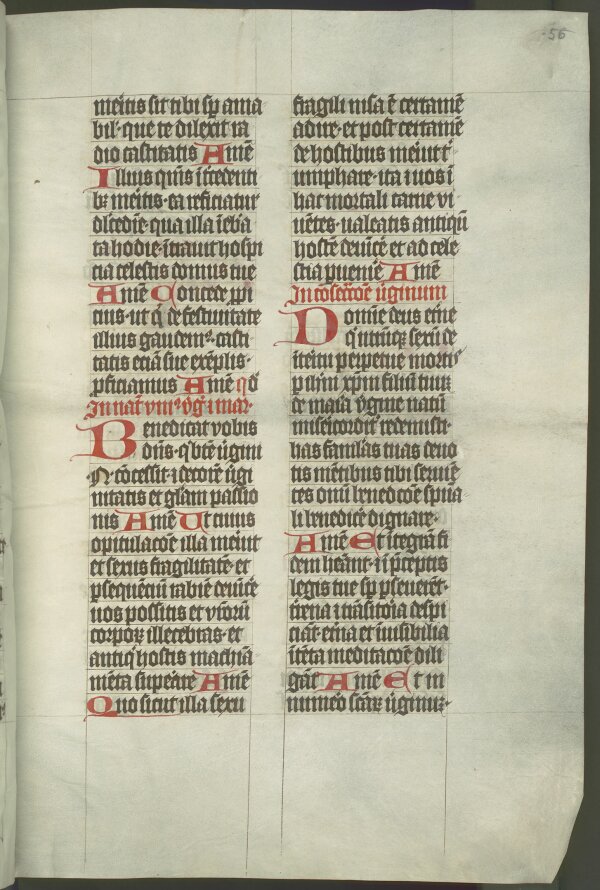 56
meritis sit tibi sp ama
bil· que te dilexit ra
dio castitatis Amē
Illius qm̄s ītcedenti
bꝫ meritis· ea reficiatur
dl̄cedīe· qua illa īeba
ta hodie· ītrauit hospi
cia celestis domus tue
Amē Concede ꝓpi
cius· ut q̄ de festiuitate
illius gaudemꝰ· casti
tatis eciā sue exēplis·
ꝓficiamus Amē qd̄
In nat̄ vniꝰ v̄gīs mar·
Benedicat vobis
dom̄s· q̄ btē ūgini
N· cōcessit ⁊ decorē ūgī
nitatis et gl̄am passio
nis Amē Ut cuius
opitulacōe illa meruit
et sexus fragilitatē· et
ꝑsequentiū rabiē deuīcē
uos possitis et v̄roꝝ
corpoꝝ illecebras· et
antiq̄ hostis machīa
mēta supeare Amē
Quo sicut illa sexu
fragili nisa ē certamē
adire· et post certamē
de hostibus meruit tⁱ
umphare· ita ⁊ uos ī
hac mortali carne vi
uētes· ualeatis antiquū
hostē deuīcē et ad cele
stia ꝑuenīe Amē
In cōsecrōe ūginum
Domīe deus eīne
q̄ utrūqꝫ sexū de
īteritu ꝑpetue mortis
ꝑ ih̄m xp̄m filiū tuū
de maīa v̄gine natū
misericordit̄ redemisti·
has famlās tuas deuo
tis mētibus tibi seruiē
tes omī bened̄cōe spūa
li benedice dignare·
Amē Et ītegrā fi
dem hēant· ⁊ ī p̄ceptis
legis tue sp ꝑseuerēt·
trena ⁊ trāsitoīa despi
ciāt· eīna et īuisibilia
ītēta meditacōe dili
gāt Amē Et in
numēo scāꝝ ūginuꝫ·